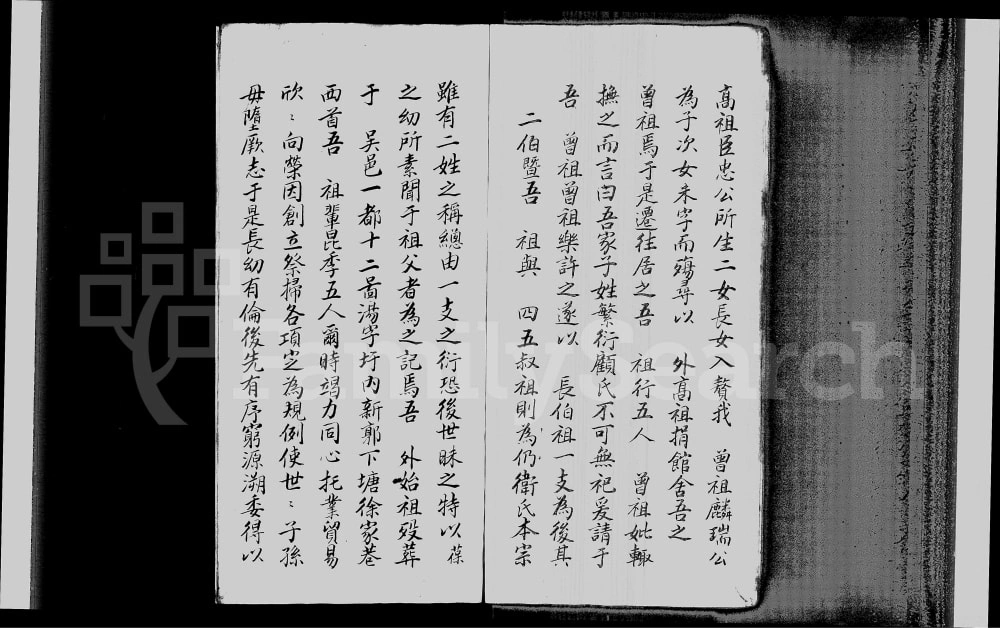 高祖臣忠公所生二女長女入贅我　曾祖麟瑞公
為子次女未字而殤尋以　外高祖捐館舍吾之
曾祖焉于是遷往居之吾　祖行五人　曾祖妣輙
撫之而言曰吾家子姓繁衍顧氏不可無祀爰請于
吾　曾祖曾祖樂許之遂以　長伯祖一支為後其
二伯暨吾　祖與　四五叔祖則為仍衛氏本宗
雖有二姓之稱總由一支之衍恐後世昧之特以葆
之幼所素聞于祖父者為之記焉吾　外始祖殁葬
于　吳邑一都十二啚湯字圩內新郭下塘徐家巷
西首吾　祖輩昆季五人爾時竭力同心托業貿易
欣〻向榮因創立祭掃各項定為規例使世〻子孫
毋墮厥志于是長幼有倫後先有序窮源溯委得以
FamilySearch